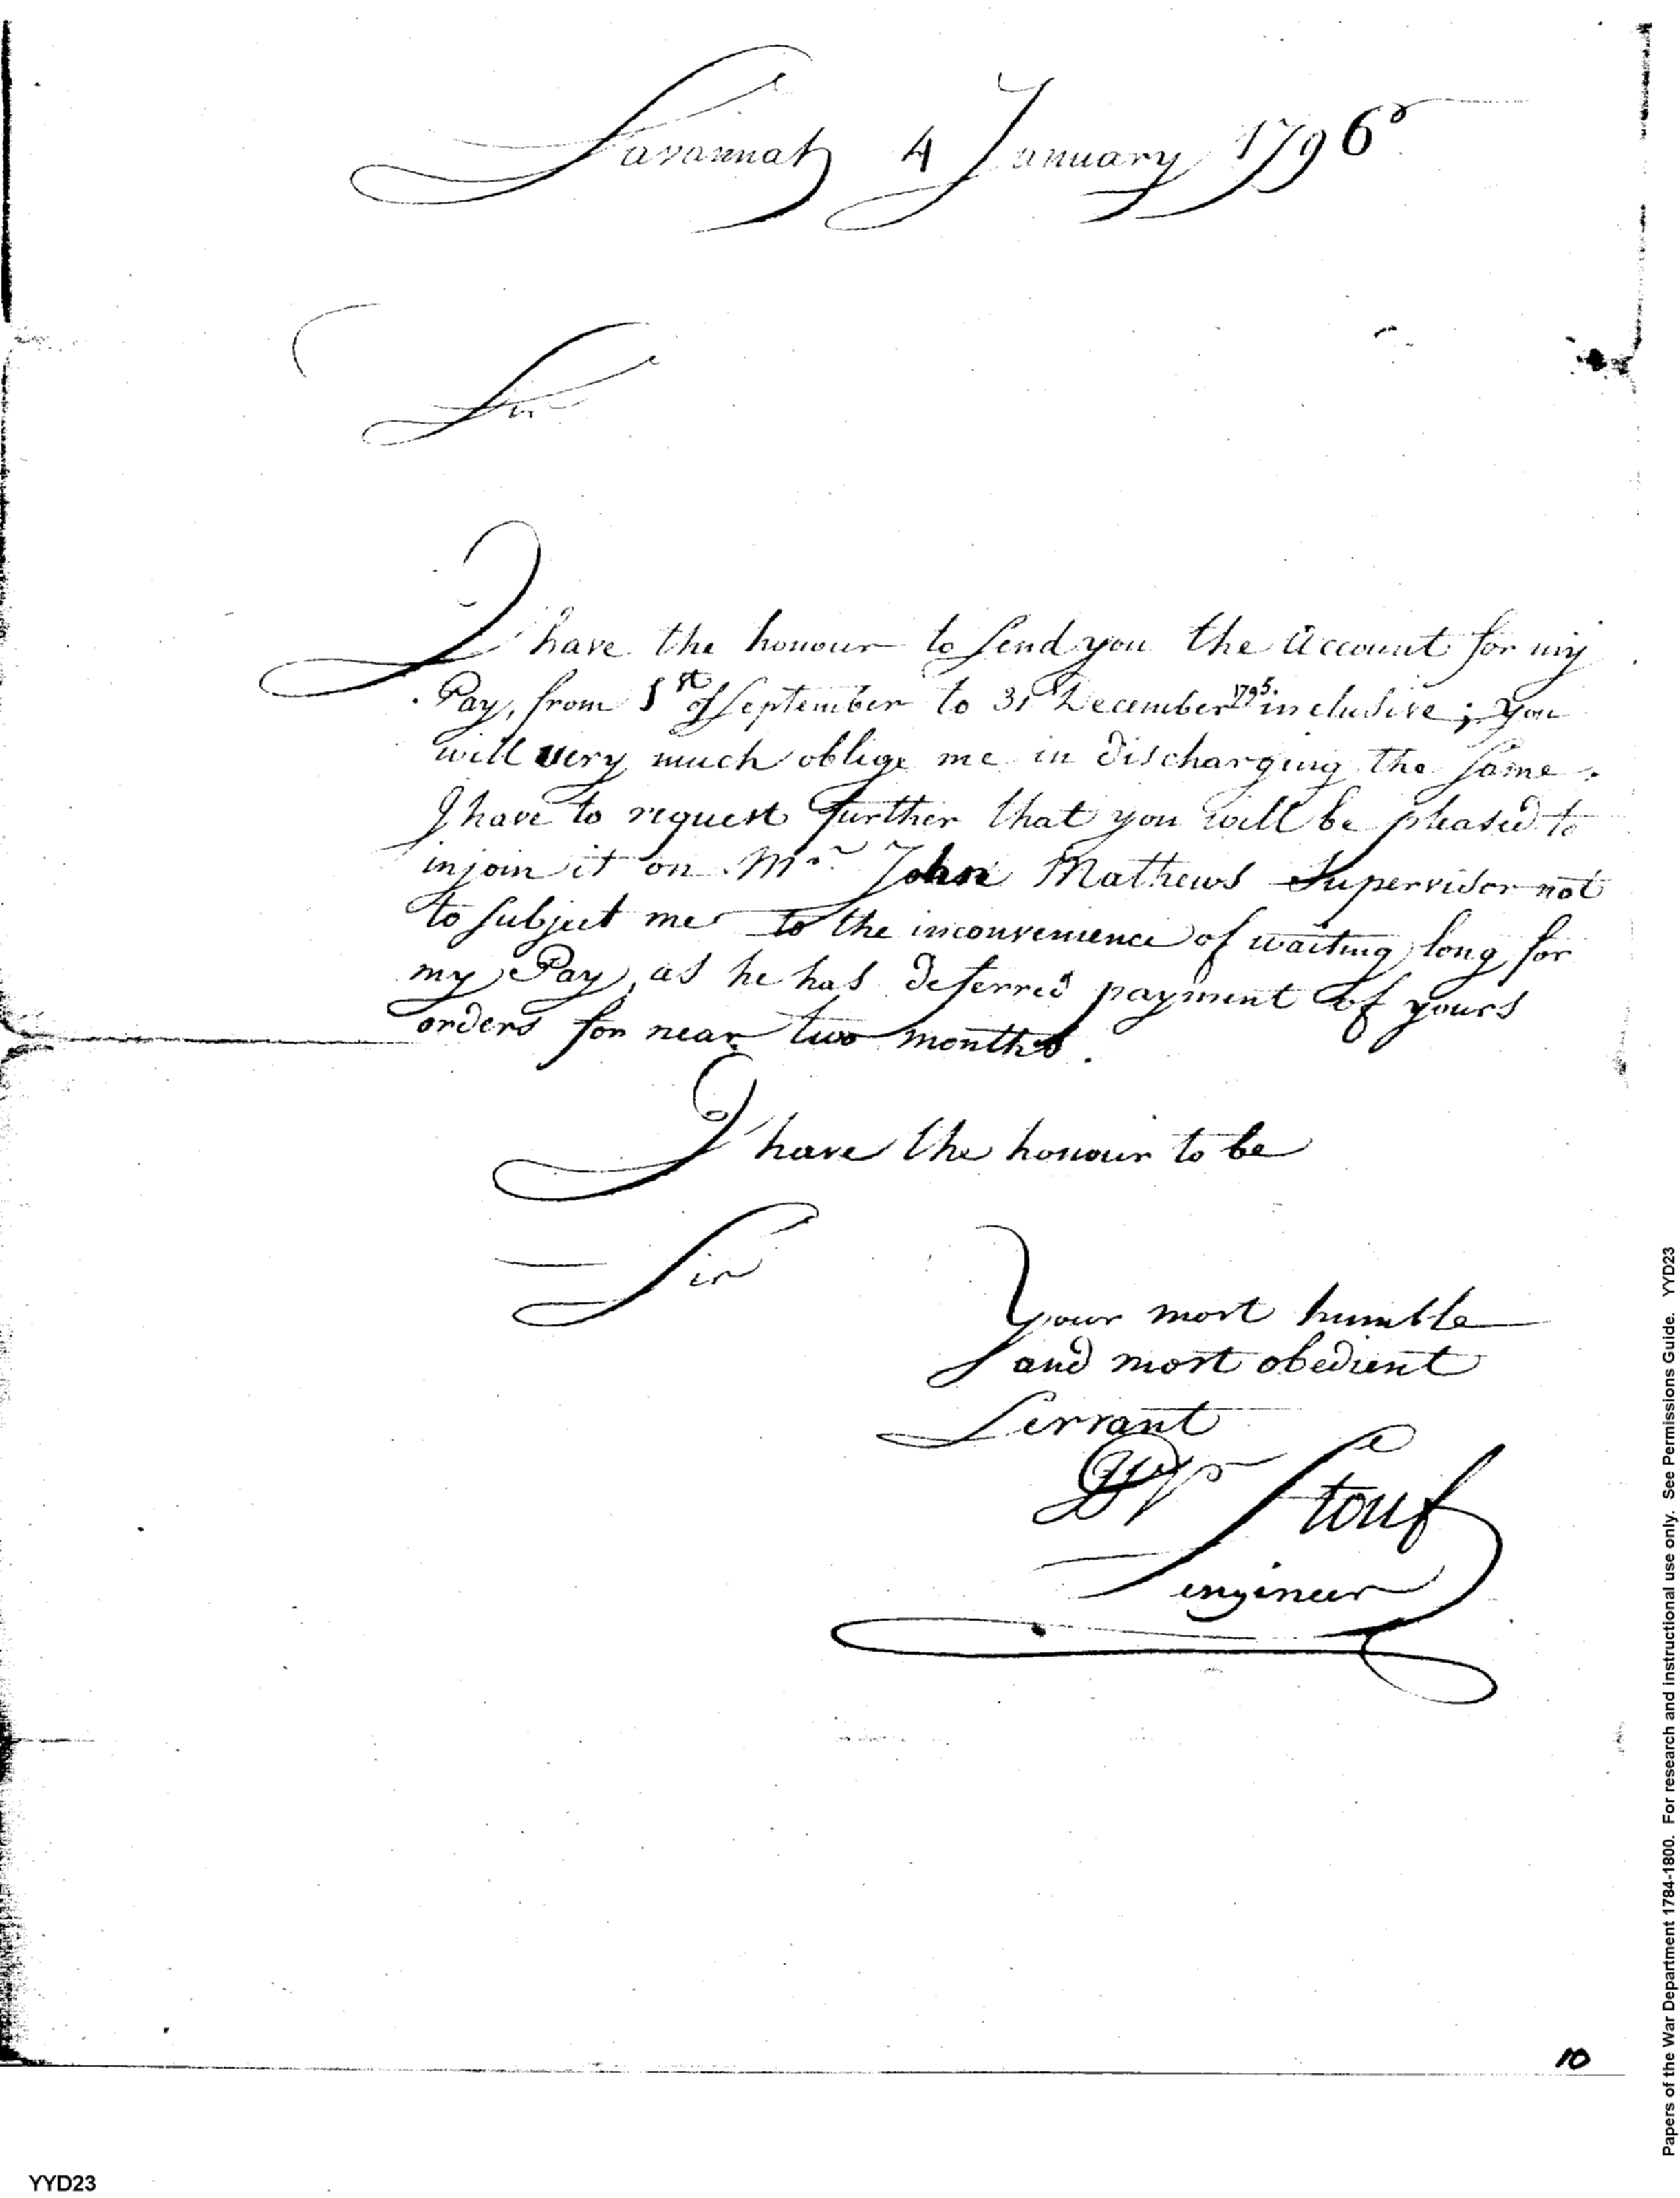 Savannah 4 January 1796
Sir
I have the honour to send you the Account for my
Pay, from 1st of September to 31 December 1795. inclusive; you
will very much oblige me in discharging the same.
I have to request further that you will be pleased to
injoin it on Mr. John Mathews Supervisor not
to subject me to the inconvenience of waiting long for
my Pay, as he has deferred payment of yours
orders for near two months.
I have the honour to be
Sir
Your most humble
and most obedient
Servant
Stouf
engineer
10
YYD23
Papers of the War Department 1784-1800. For research and instructional use only. See Permissions Guide. YYD23